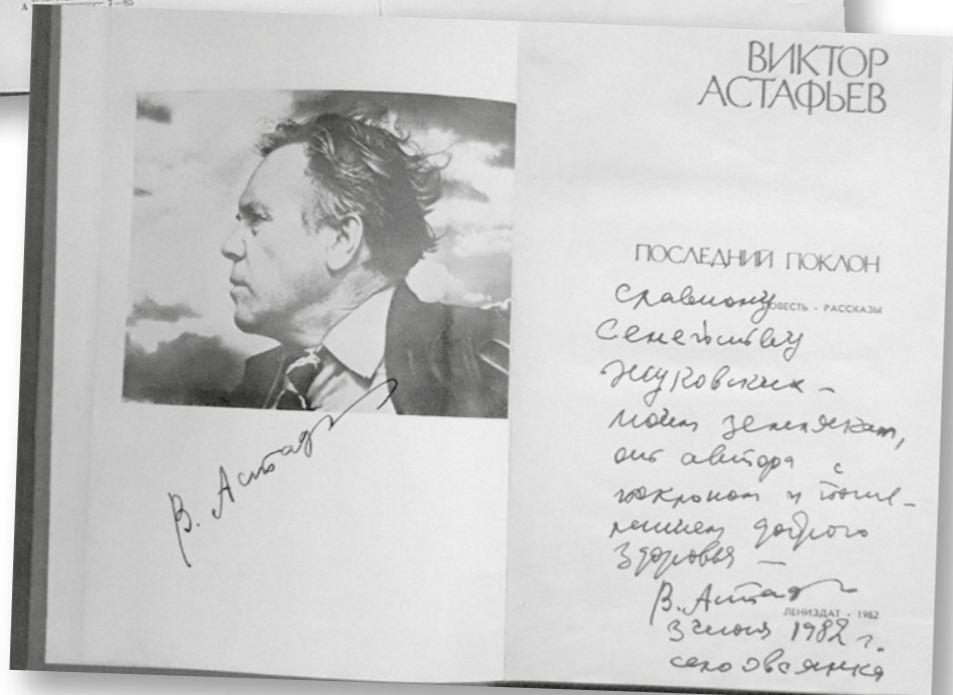 В. Астаф
ВИКТОР
АСТАФЬЕВ
ПОСЛЕДНИЙ ПОКЛОН
ПОВЕСТЬ · РАССКАЗЫ
славному
семейству
Жуковских –
моим землякам,
от автора с
поклоном и поже-
ланием доброго
здоровья –
В. Астаф
ЛЕНИЗДАТ · 1982
1982 г.
село Овсянка